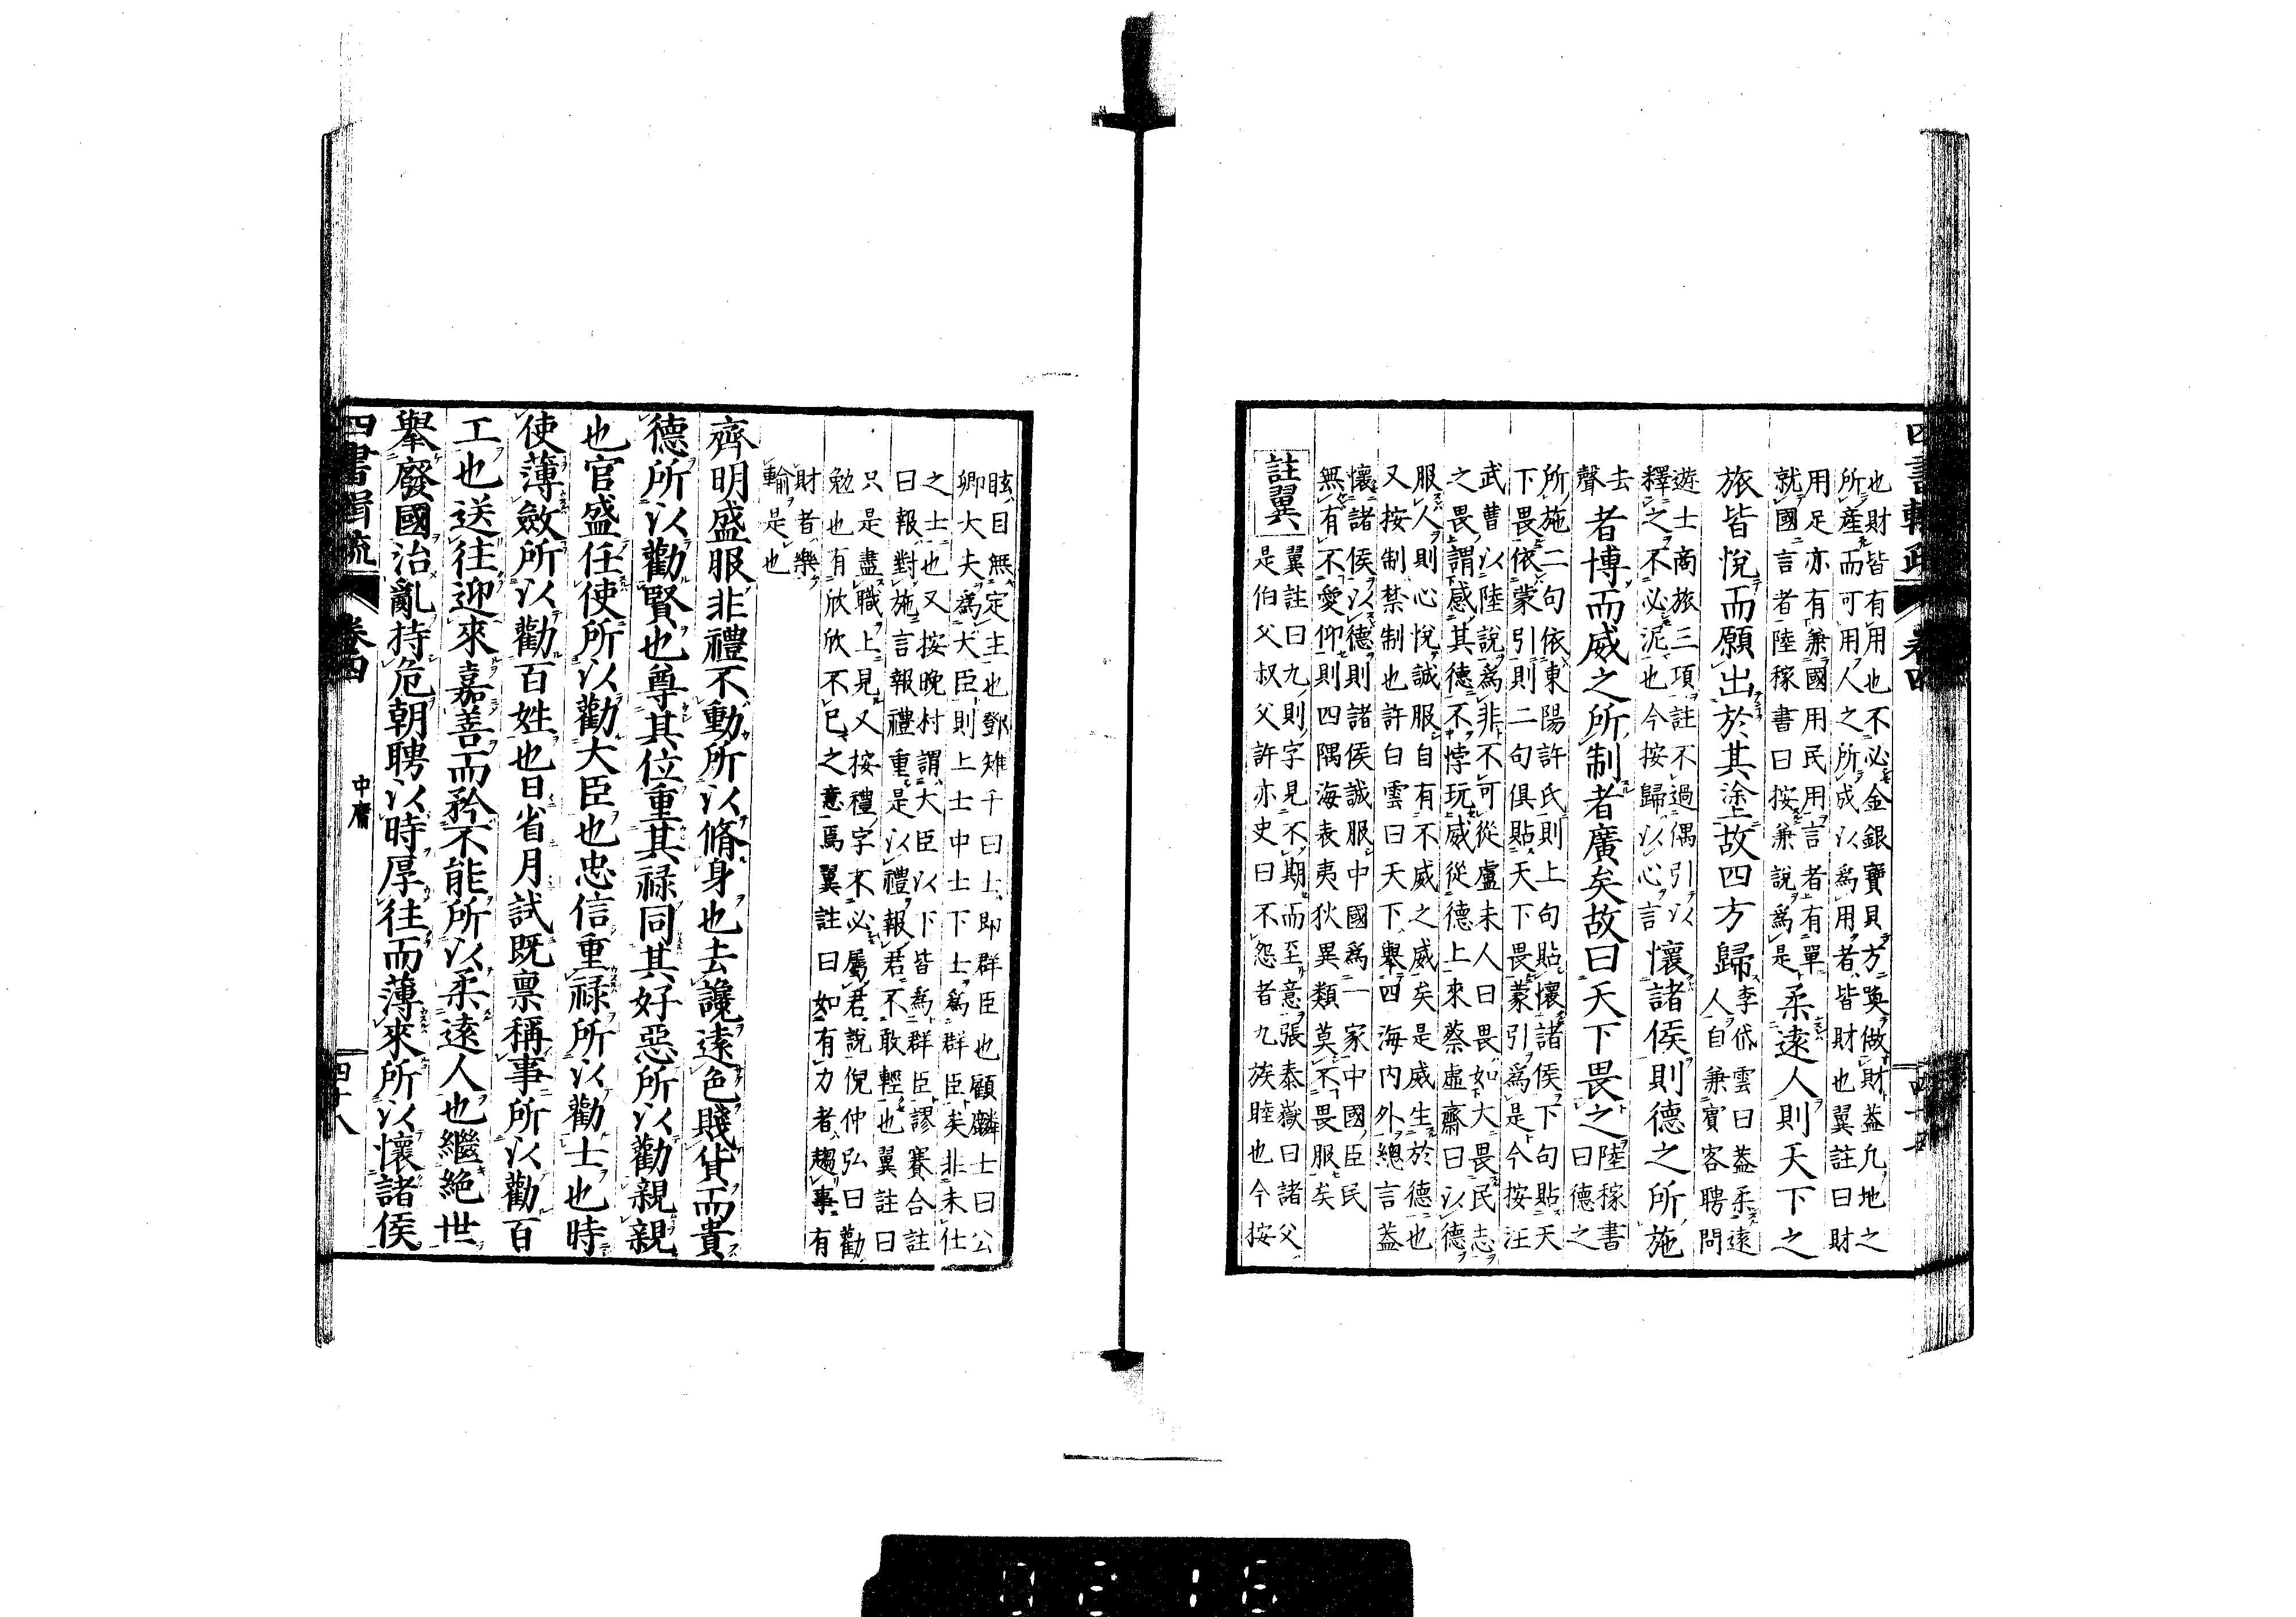 四書輯疏
卷四
也財皆有用也不必金銀寶貝方喚做財蓋凡地之
所產而可用人之所成以爲用者皆財也翼註曰財
用足亦有兼國用民用言者有單
就國言者陸稼書曰按兼說爲是
柔遠人則天下之
旅皆悅而願出於其塗故四方歸
李岱雲曰蓋柔遠
人自兼賓客聘問
遊士商旅三項註不過偶引以
釋之不必泥也今按歸以心言
懷諸侯則德之所施
去
聲
者博而威之所制者廣矣故曰天下畏之
陸稼書
曰德之
所施二句依東陽許氏則上句貼懷諸侯下句貼天
下畏依蒙引則二句俱貼天下畏蒙引爲是今按汪
武曹以陸說爲非不可從盧未人曰畏如大畏民志
之畏謂感其德不悖玩威從德上來蔡虛齋曰以德
服人則心悅誠服自有不威之威矣是威生於德也
又按制禁制也許白雲曰天下舉四海內外總言蓋
懷諸侯以德則諸侯誠服中國爲一家中國臣民
無有不愛仰則四隅海表夷狄異類莫不畏服矣
註翼
翼註曰九則字見不期而至意張泰嶽曰諸父
是伯父叔父許亦史曰不怨者九族睦也今按
眩目無定主也鄧雉千曰士即群臣也顧麟士曰公
卿大夫爲大臣則上士中士下士爲群臣矣非未仕
之士也又按晚村謂大臣以下皆爲群臣謬賽合註
曰報對施言報禮重是以禮報君不敢輕也翼註曰
只是盡職上見又按禮字不必屬君說倪仲弘曰勸
勉也有欣欣不已之意焉翼註曰如有力者趨事有
財者樂
輸是也
齊明盛服非禮不動所以脩身也去讒遠色賤貨而貴
德所以勸賢也尊其位重其祿同其好惡所以勸親親
也官盛任使所以勸大臣也忠信重祿所以勸士也時
使薄斂所以勸百姓也日省月試既稟稱事所以勸百
工也送往迎來嘉善而矜不能所以柔遠人也繼絕世
舉廢國治亂持危朝聘以時厚往而薄來所以懷諸侯
四書輯疏
卷四
中庸
四十八